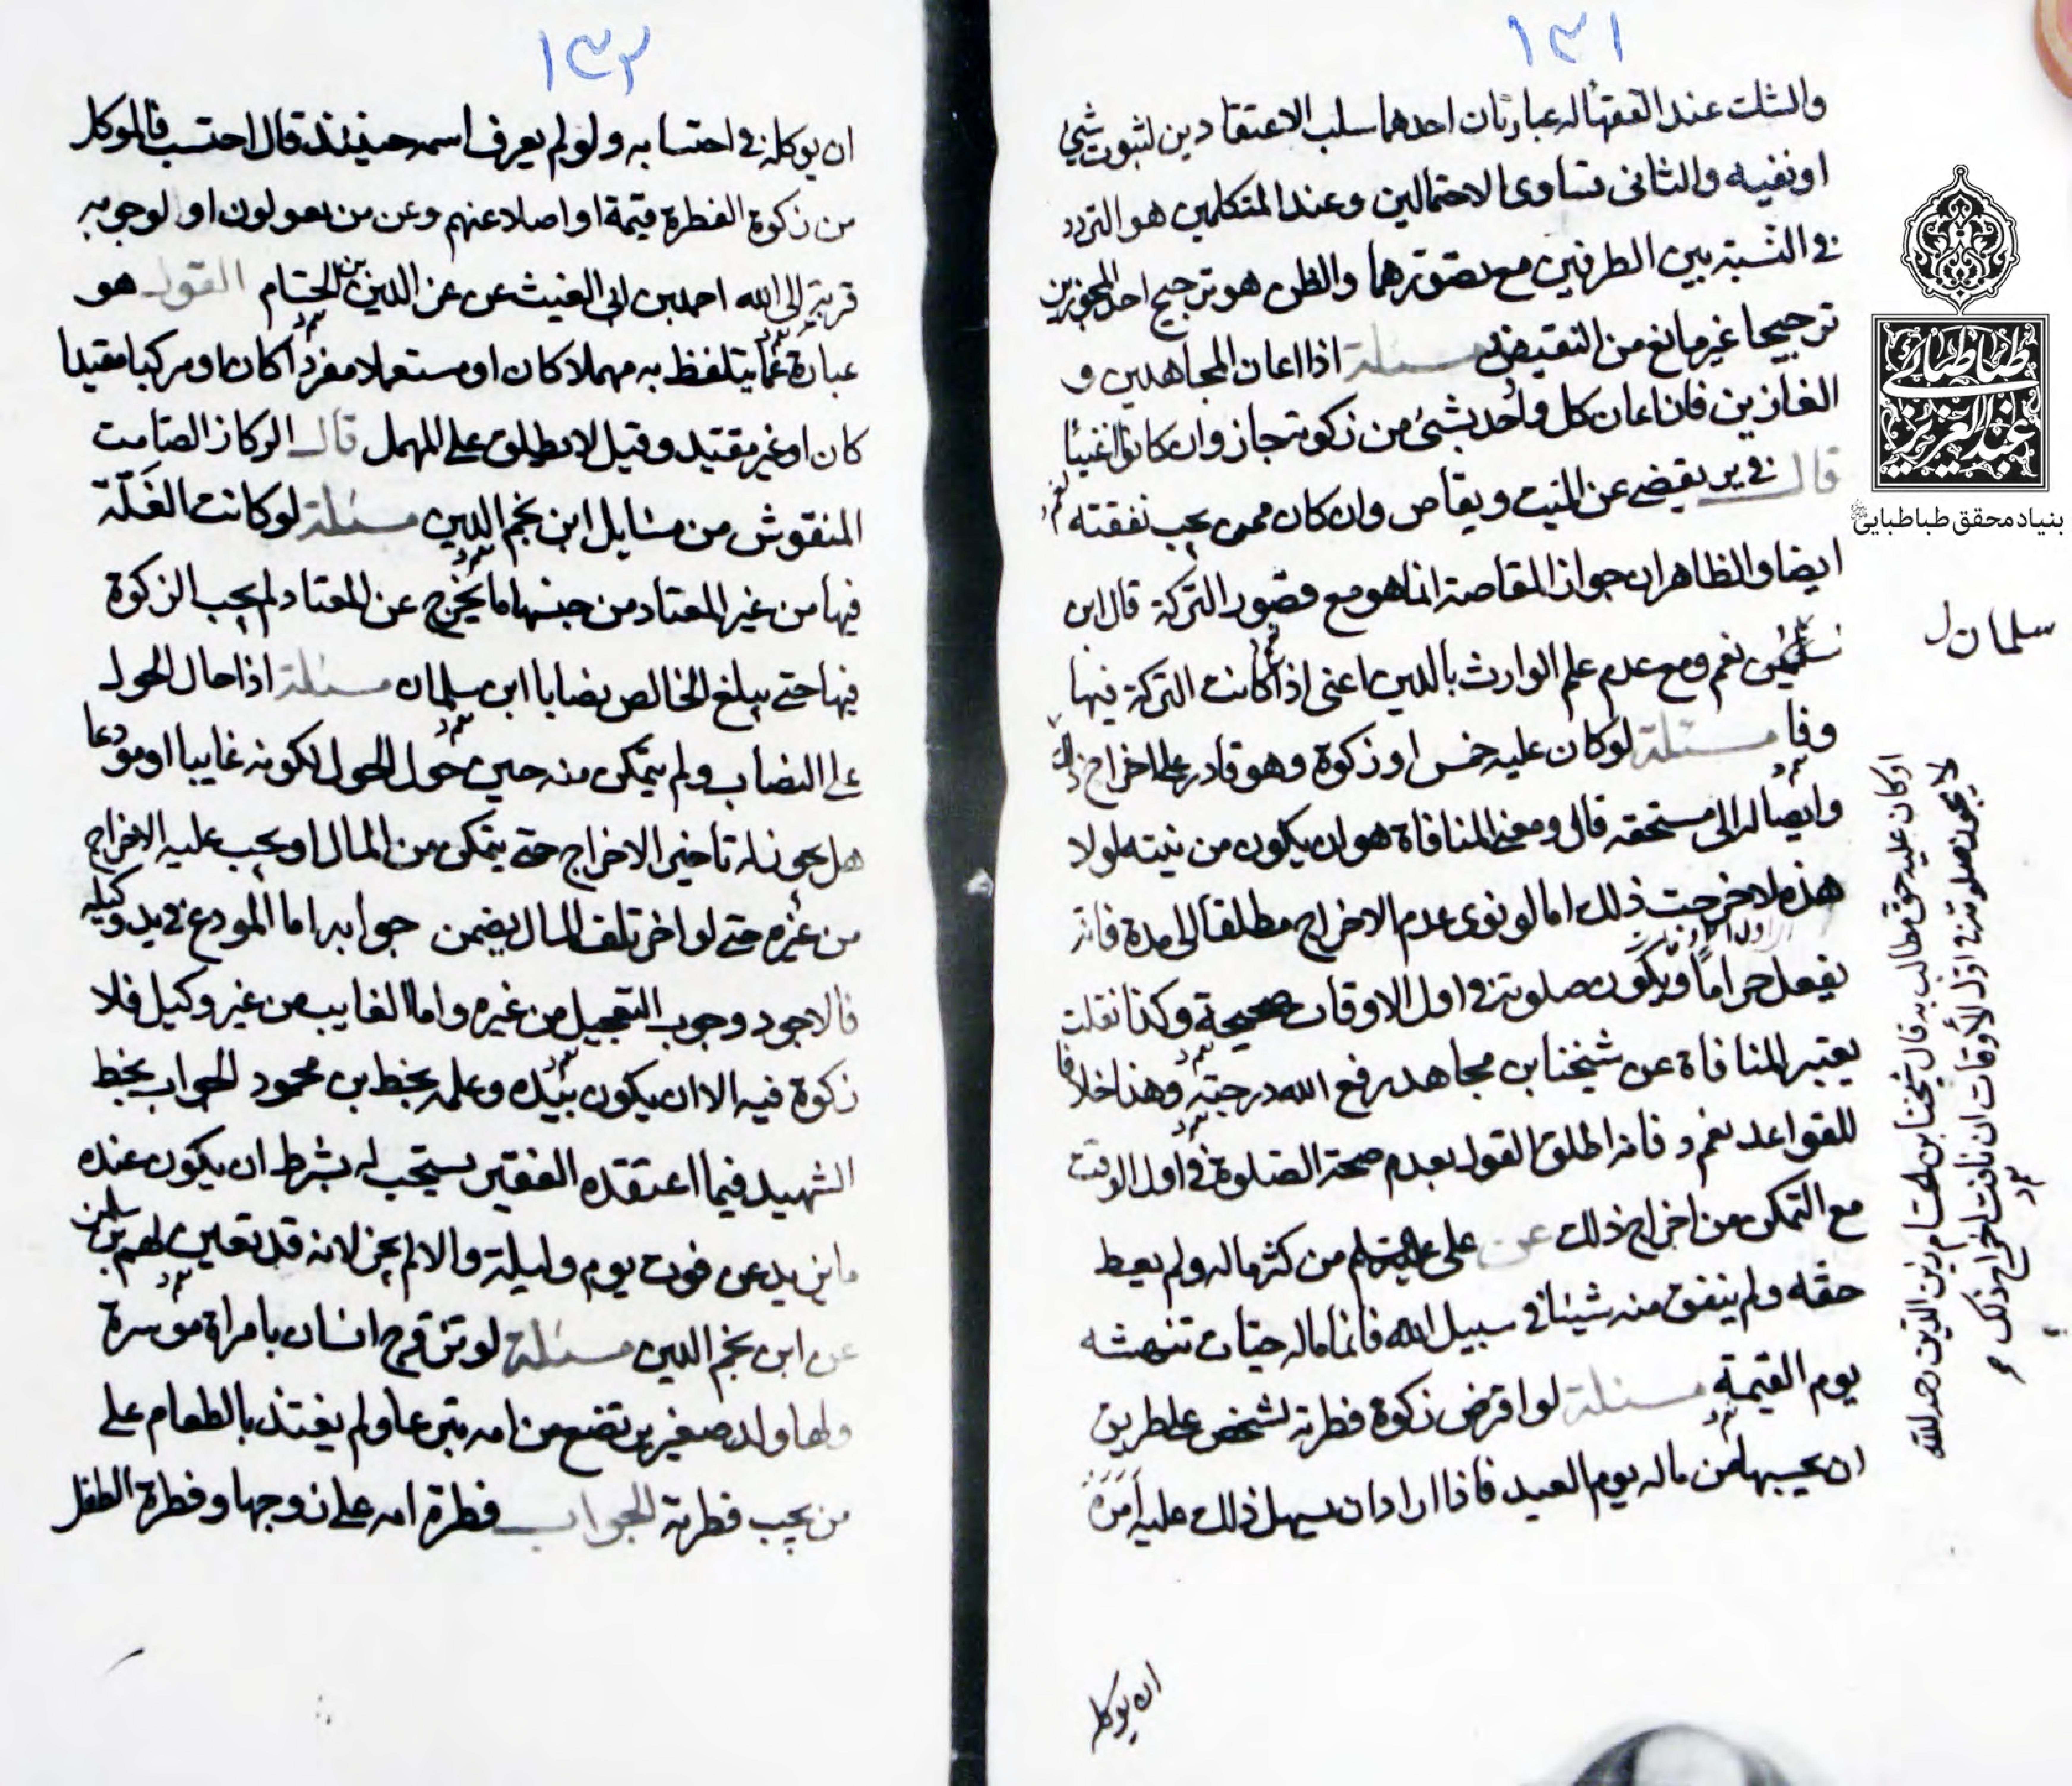 ١٣١
والشك عند الفقهاله عبارتان احدهما سلب الاعتقادين لثبوت شئ
او نفيه والثانى تساوى الاحتمالين وعند المتكلمين هو التردد
فى النسبة بين الطرفين مع تصورهما والظن هو ترجيح احد المجوزين
ترجيحا غير مانع من النقيض مسئلة اذا اعان المجاهدين و
الغازين فان اعان كل واحد بشئ من زكوته جاز وان كانوا اغنيا
قال فى ير يقضى عن الميت ويقاص وان كان ممن يجب نفقته
ايضا والظاهر ان جواز المقاصة انما هو مع قصور التركة قال ابن
نعم ومع عدم علم الوارث بالدين اعنى اذا كانت التركة فيها
وفا مسئلة لو كان عليه خمس او زكوة وهو قادر على اخراج ذلك
وايصاله الى مستحقه قال ومعنى المنافاة هو ان يكون من نيته لولا
هذه لاخرجت ذلك اما لو نوى عدم الاخراج مطلقا الى مدة فانه
يفعل حراما ويكون صلوته فى اول الاوقات صحيحة وكذا نقلت
يعتبر المنافاة عن شيخنا بن مجاهد رفع الله درجته وهذا خلافا
للقواعد نعم د فانه اطلق القول بعدم صحة الصلوة فى اول الوقت
مع التمكن من اخراج ذلك عن على عليه السلم من كثر ماله ولم يعط
حقه ولم ينفق منه شيئا فى سبيل الله فانما ماله حيات تنهشه
يوم القيمة مسئلة لو اقرض زكوة فطرته لشخص على طريق
ان يحسبها من ماله يوم العيد فاذا اراد ان يسهل ذلك عليه امره
ان يوكله
سلمان ل
او كان عليه حق مطالب به قال شيخنا بن الحسام زين الدين رحمه الله
لا يجوز صلوته فى اول الأوقات ان نافت اخراج ذلك
بنیاد محقق طباطبایی
١٣٢
ان يوكله فى احتسابه ولو لم يعرف اسمه حينئذ قال احتسب فالموكل
من زكوة الفطرة قيمة او اصلا عنهم وعن من يعولون او لوجوبه
قربة الى الله احمد بن ابى الغيث عن عز الدين بن الحسام القول هو
عبارة عما يتلفظ به مهملا كان او مستعملا مفردا كان او مركبا مقيدا
كان او غير مقيد وقيل لا يطلق على المهمل قال الركاز الصامت
المنقوش من مسايل ابن نجم الدين مسئلة لو كانت الغلة
فيها من غير المعتاد من جنسها ما يخرج عن المعتاد لم يجب الزكوة
فيها حتى يبلغ الخالص نصابا ابن سلمان مسئلة اذا حال الحول
على النصاب ولم يتمكن منه حين حول الحول لكونه غايبا او مودعا
هل يجوز له تاخير الاخراج حتى يتمكن من المال او يجب عليه الاخراج
من غيره حتى لو اخر تلف المال يضمن جوابه اما المودع فى يد وكيله
فالاجود وجوب التعجيل من غيره واما الغايب من غير وكيل فلا
زكوة فيه الا ان يكون بيده وعلمه بخط بن محمود الجواب بخط
الشهيد فيما اعتقده الفقير يستحب له بشرط ان يكون عنده
ما يزيد عن قوت يوم وليلة والا لم يجز لانه قد تعين لهم بن سلمن
عن ابن نجم الدين مسئلة لو تزوج انسان بامراة موسرة
ولها ولد صغير يرتضع من امه متبرعا ولم يغتذ بالطعام على
من يجب فطرته الجواب فطرة امه على زوجها وفطرة الطفل